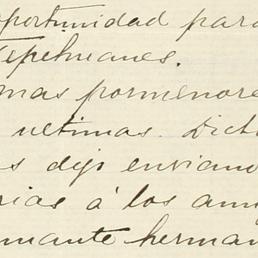 oportunidad para
Tepehuanes.
mas pormenore
ultimas. Dict
s dejo enviano
rias á los ami
amante herman